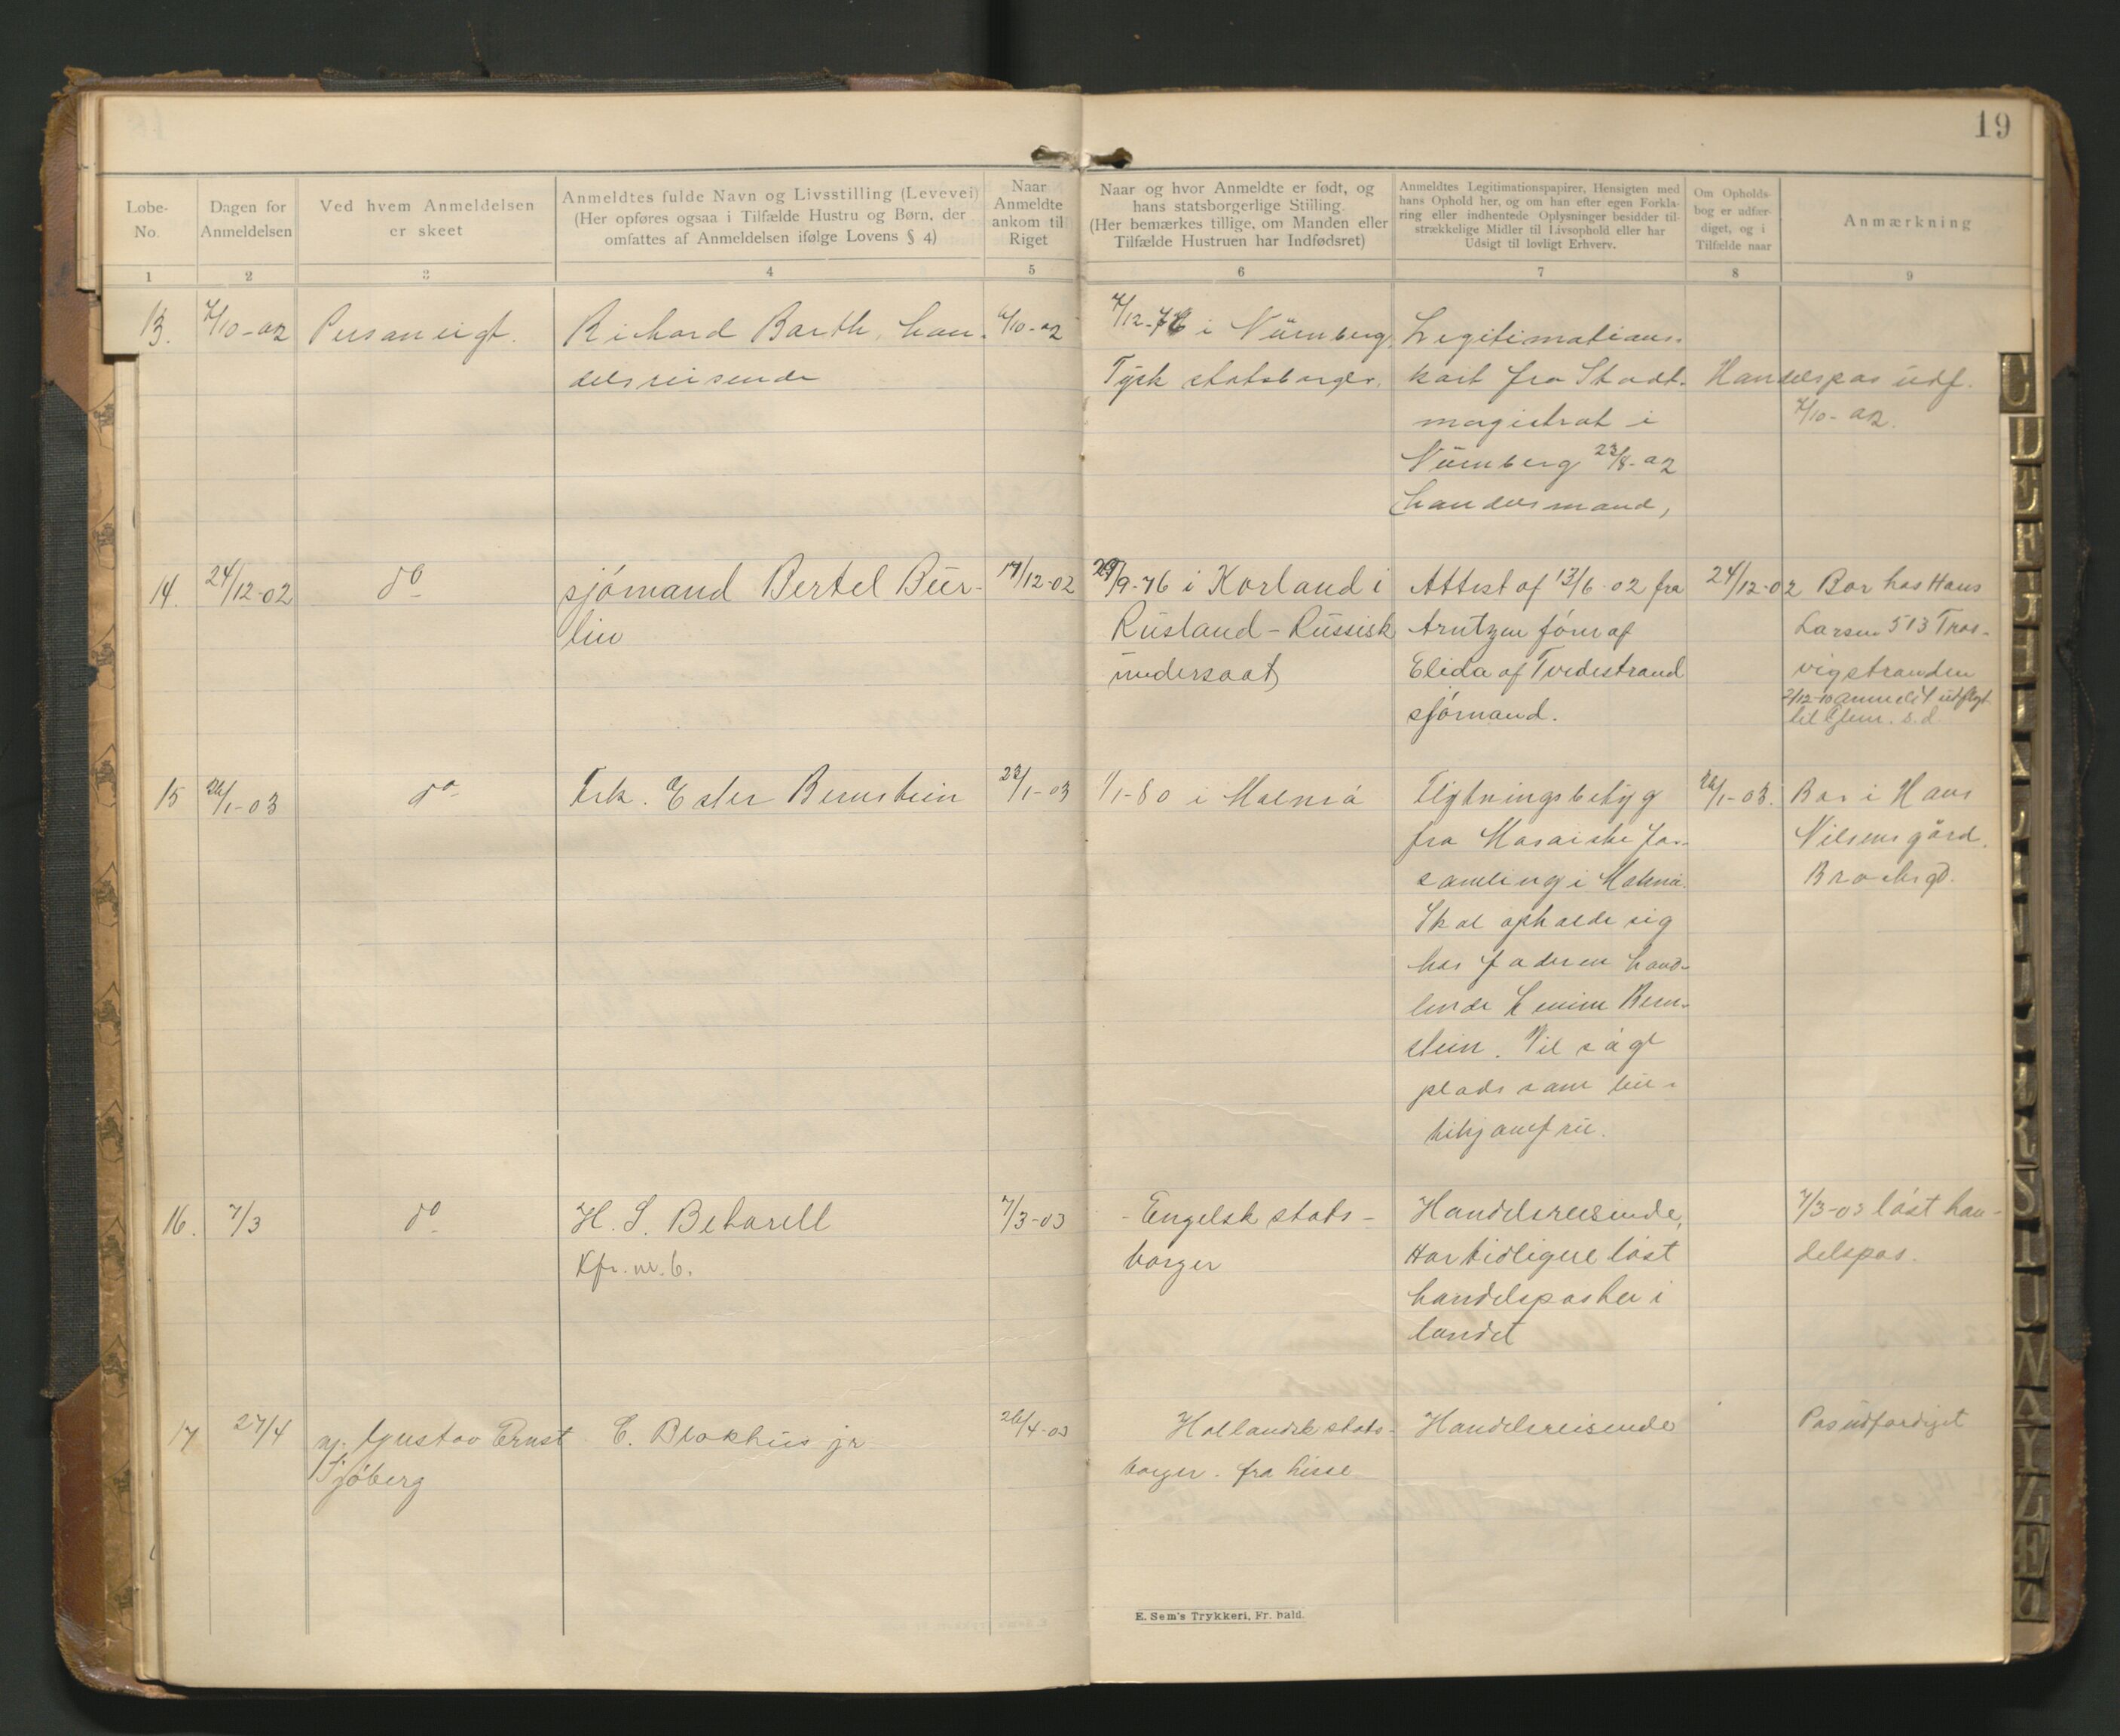 19
Løbe-
No.
Dagen for
Anmeldelsen
Ved hvem Anmeldelsen
er skeet
Anmeldtes fulde Navn og Livsstilling (Levevei)
(Her opføres ogsaa i Tilfælde Hustru og Børn, der
omfattes af Anmeldelsen ifølge Lovens § 4)
Naar
Anmeldte
ankom til
Riget
Naar og hvor Anmeldte er født, og
hans statsborgerlige Stiilling.
(Her bemærkes tillige, om Manden eller
Tilfælde Hustruen har Indfødsret)
Anmeldtes Legitimationspapirer, Hensigten med
hans Ophold her, og om han efter egen Forkla-
ring eller indhentede Oplysninger besidder til-
strækkelige Midler til Livsophold eller har
Udsigt til lovligt Erhverv.
Om Opholds-
bog er udfær-
diget, og i
Tilfælde naar
Anmærkning
1 2 3 4 5 6 7 8 9
13.
7/10-02
Personligt.
Richard Barth, han-
delsreisende
6/10-02
7/12-76 i Nürnberg.
Tysk statsborger.
Legitimations-
kort fra Stadt-
magistrat i
Nürnberg 23/8-02
handelsmand,
Handelspas udf.
7/10-02.
14.
24/12-02
do
sjómand Bertel Bür-
lin
17/12-02
29/9-76 i Korland i
Rusland - Russisk
undersaat
Attest af 13/6-02 fra
Arntzen fórer af
Elida af Tvedestrand
sjómand.
24/12-02
Bor hos Hans
Larsen 513 Tros-
vigstranden
2/12-10 anmeldt utflyt
til Glem. s.d.
15
26/1-03
do
Frk. Ester Bernstein
22/1-03
1/1-80 i Malmö
Flytningsbetyg
fra Mosaiske for-
samling i Malmö.
Skal opholde sig
hos faderen hand-
lende Bern-
stein. Vil sögt
plads som bu-
tikjomfru.
26/1-03.
Bor i Hans
Nilsens gård.
16.
7/3
do
H. S. Beharell
Kfr. nr. 6.
7/3-03
- Engelsk stats-
borger
Handelsreisende,
Har tidligere lóst
handelspas her i
landet
7/3-03 lóst han-
delspas.
17
27/4
Gustav Ernst
Sjöberg
E. Blokhuis jr
26/4-03
Hollandsk stats-
borger. fra Lisse
Handelsreisende
Pas udfærdiget
E. Sem's Trykkeri, Fr. hald.